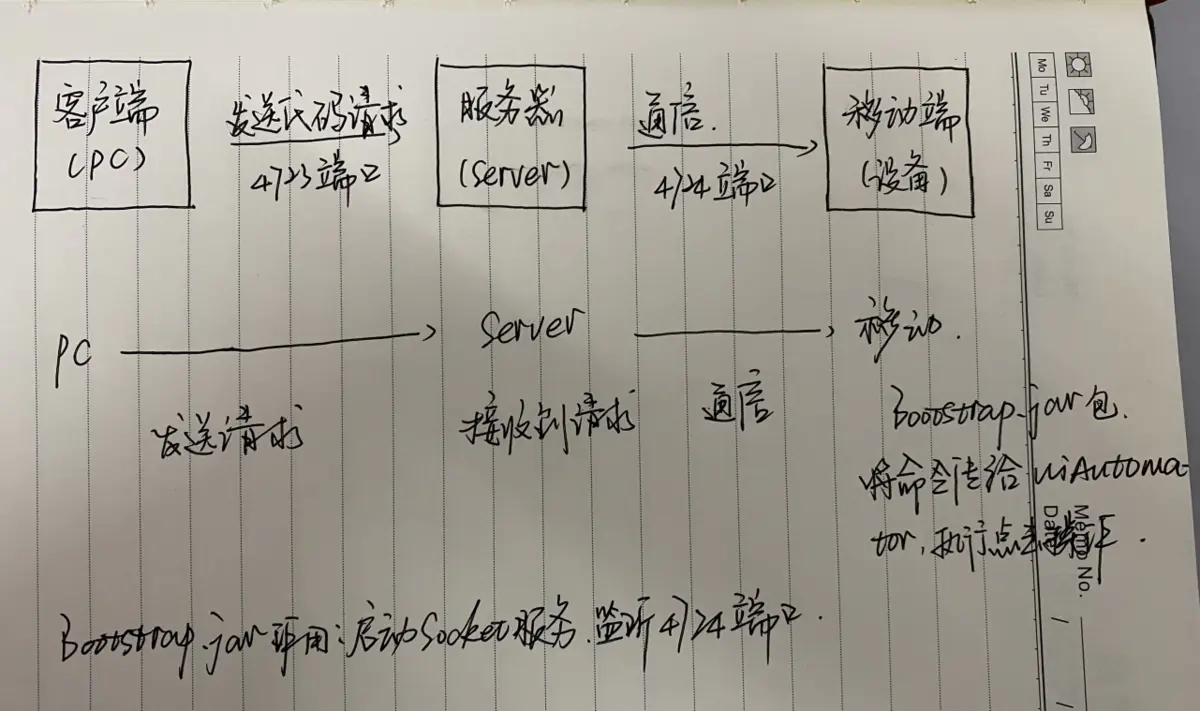 客户端
(PC)
发送代码请求
4723端口
服务器
(Server)
通信.
4724端口
移动端
(设备)
Mo Tu We Th Fr Sa Su
PC
Server
移动.
发送请求
接收到请求
通信
Bootstrap.jar包.
将命令传给uiAutoma
tor,执行点击操作.
Memo No.
Da
Bootstrap.jar作用:启动Socket服务.监听4724端口.